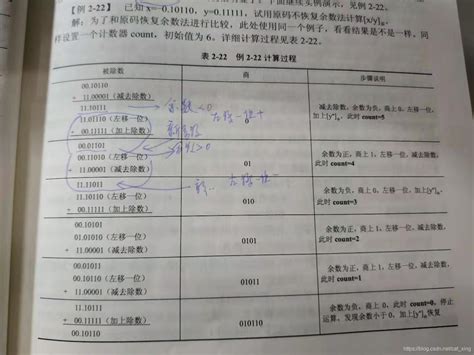 【例 2-22】 已知 x=0.10110，y=0.11111，试用原码不恢复余数法计算[x/y]原。
解：为了和原码恢复余数法进行比较，此处使用同一个例子，看看结果是不是一样。同
样设置一个计数器 count，初始值为 6。详细计算过程见表 2-22。
表 2-22 例 2-22 计算过程
被除数 商 步骤说明
00.10110
+ 11.00001（减去除数）
11.10111
11.01110（左移一位）
+ 00.11111（加上除数）
0
减去除数，余数为负，商上 0，左移一位，
此时 count=5
余数<0
左移一位+
00.01101
00.11010（左移一位）
+ 11.00001（减去除数）
01
余数为正，商上 1，左移一位，减去除数，
此时 count=4
11.11011
11.10110（左移一位）
+ 00.11111（加上除数）
010
余数为负，商上 0，左移一位，
此时 count=3
左移一位
00.10101
01.01010（左移一位）
+ 11.00001（减去除数）
0101
余数为正，商上 1，左移一位，减去除数，
此时 count=2
00.01011
00.10110（左移一位）
+ 11.00001（减去除数）
01011
余数为正，商上 1，左移一位，减去除数，
此时 count=1
11.10111
+ 00.11111（加上除数）
00.10110
010110
余数为负，商上 0，此时 count=0，停止
运算，发现余数小于 0，加上 恢复
https://blog.csdn.net/cat_xing